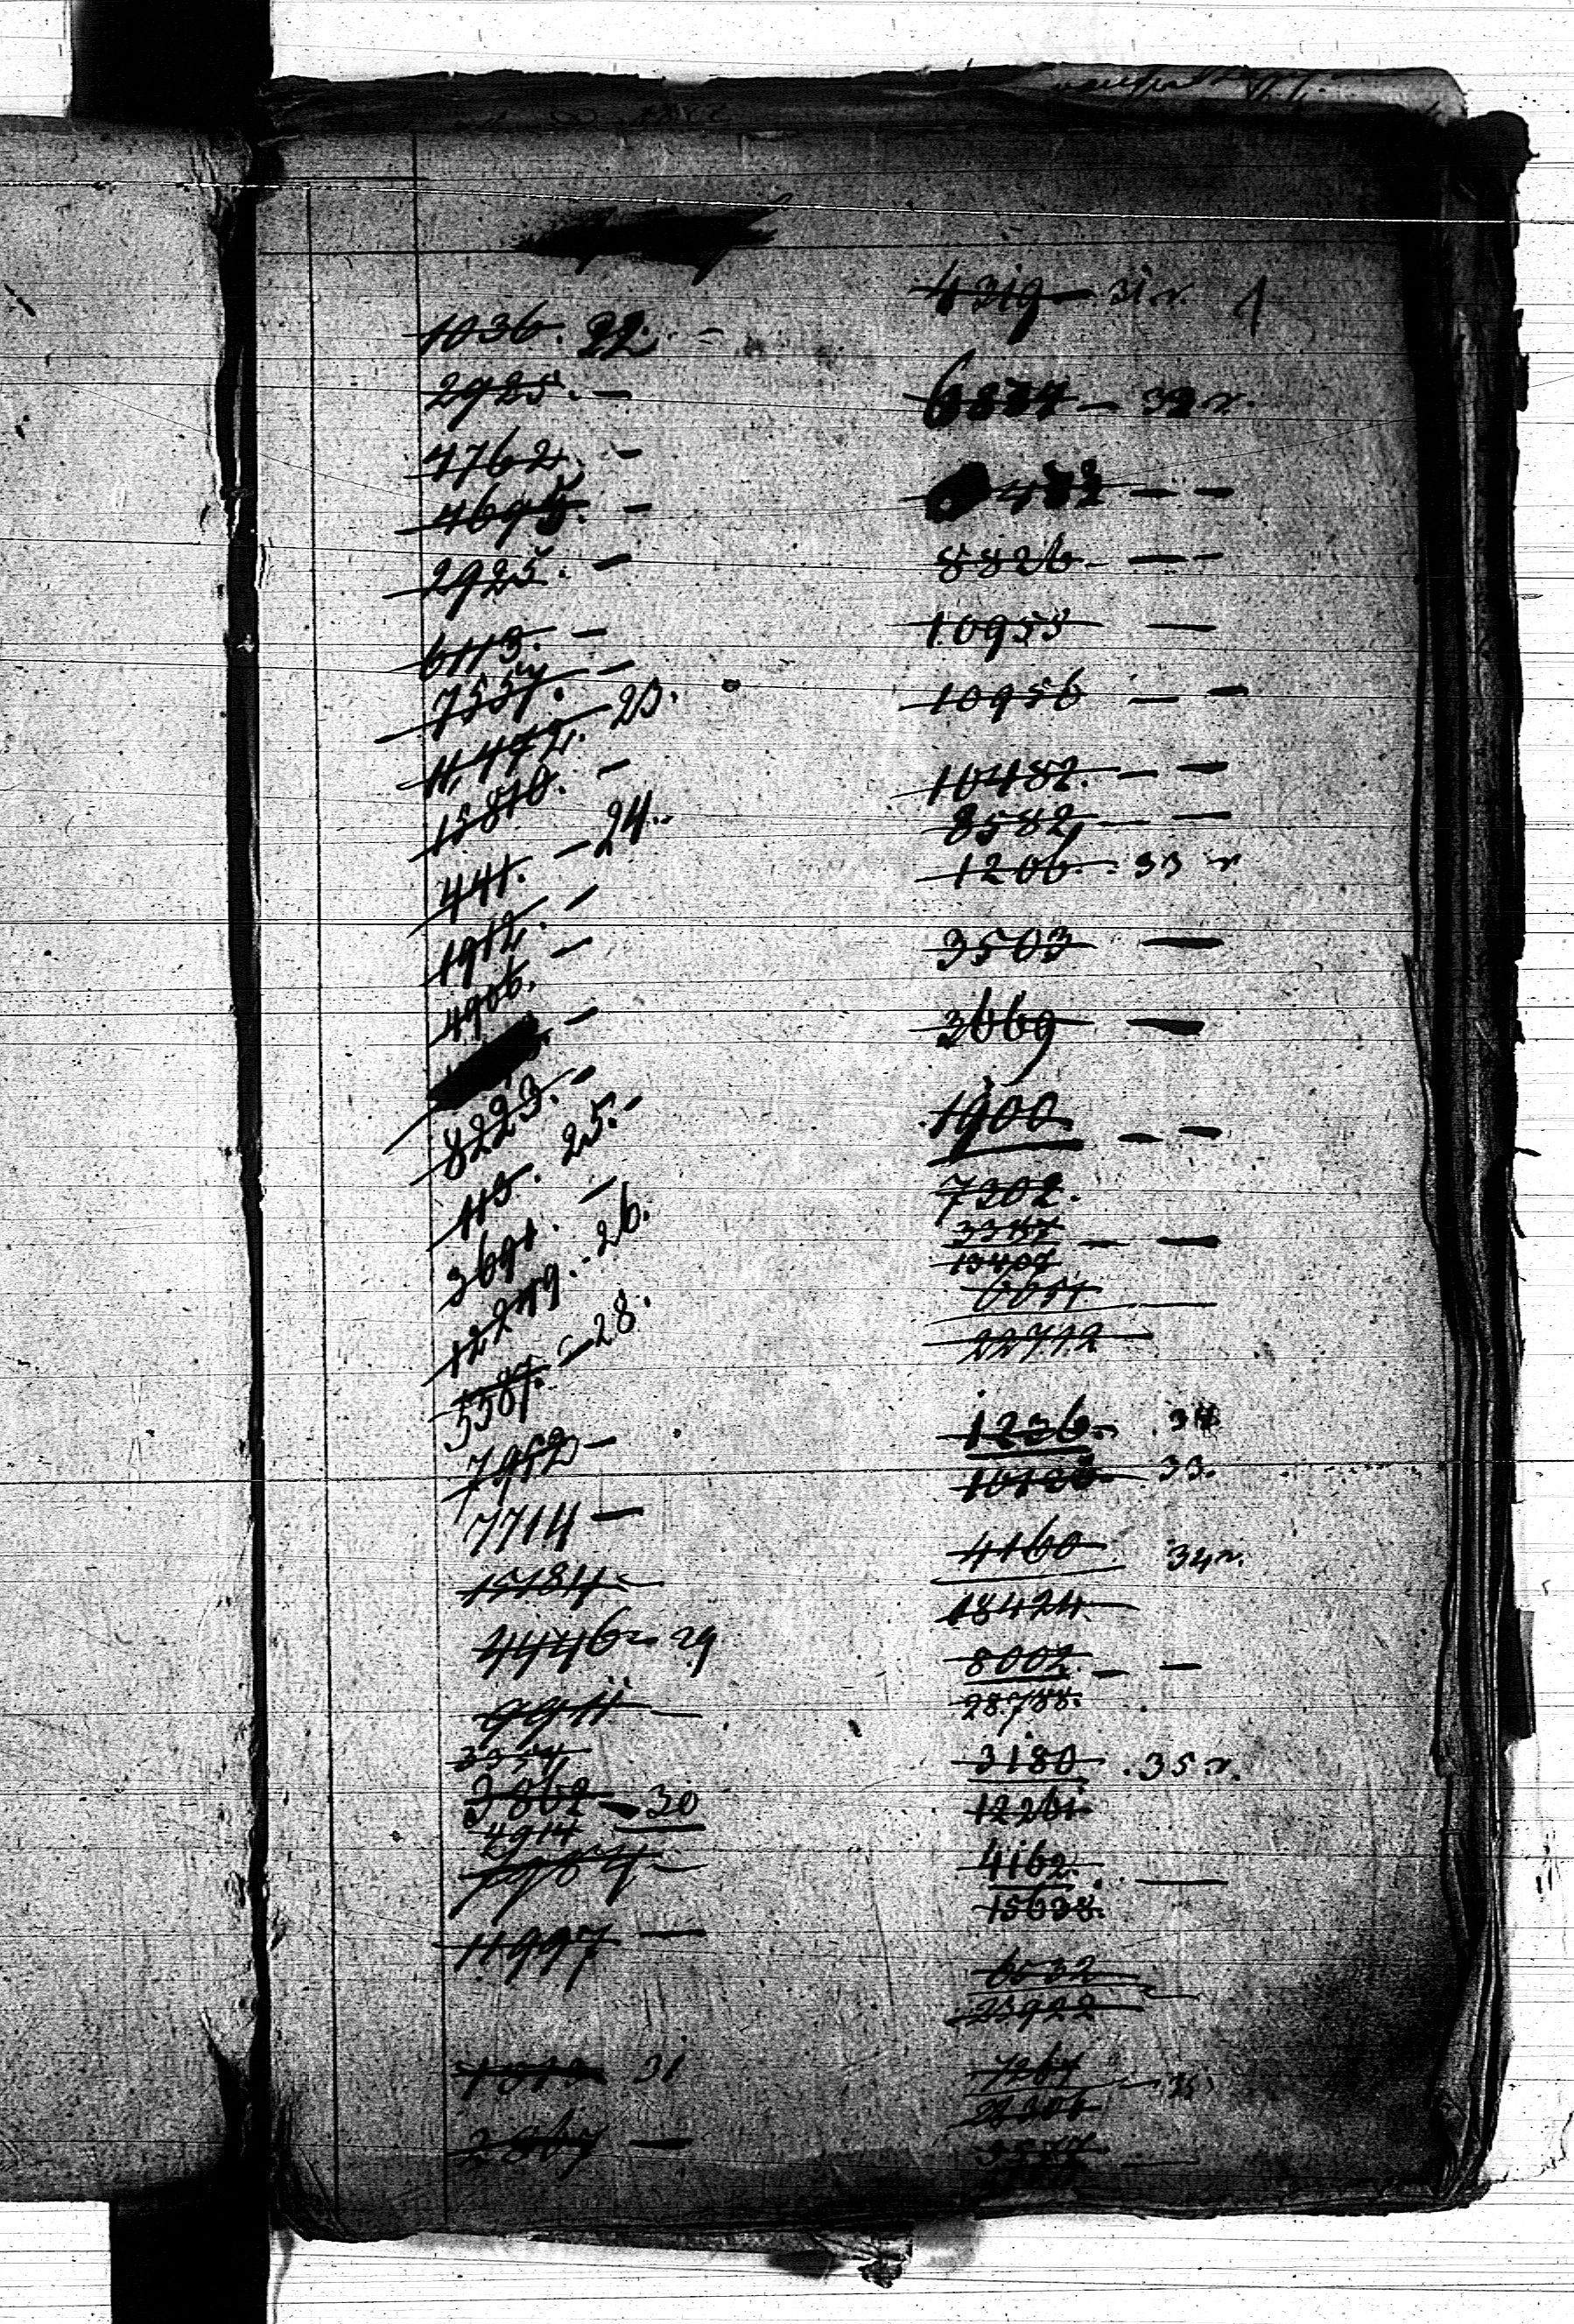 1036. 22. -
2925. -
4762. -
4695. -
2925. -
6113. -
7557. -
11,472. 23.
15810. -
441. - 24.
1912. -
4906. -
8223. -
115. 25. -
3691. -
12279. - 26.
5587. - 28.
7952 -
7714 -
15184 -
4446 - 29
9911 -
3354
3862 - 30
4914
11997 -
31
2867 -
4319 - 31 г. 1
6877 - 32 г.
8826 - -
10955 -
10956 - -
10482. - -
8582, - -
1206. - 33 г
3503 -
3669 -
1900 - -
7302.
3387 - -
13407
6651 -
22712
1236. 34
33.
4160 34 г.
18424
8002 - -
28788.
3180 . 35 г.
12261
4162. -
15638.
6032 -
23922
7264 -
23306